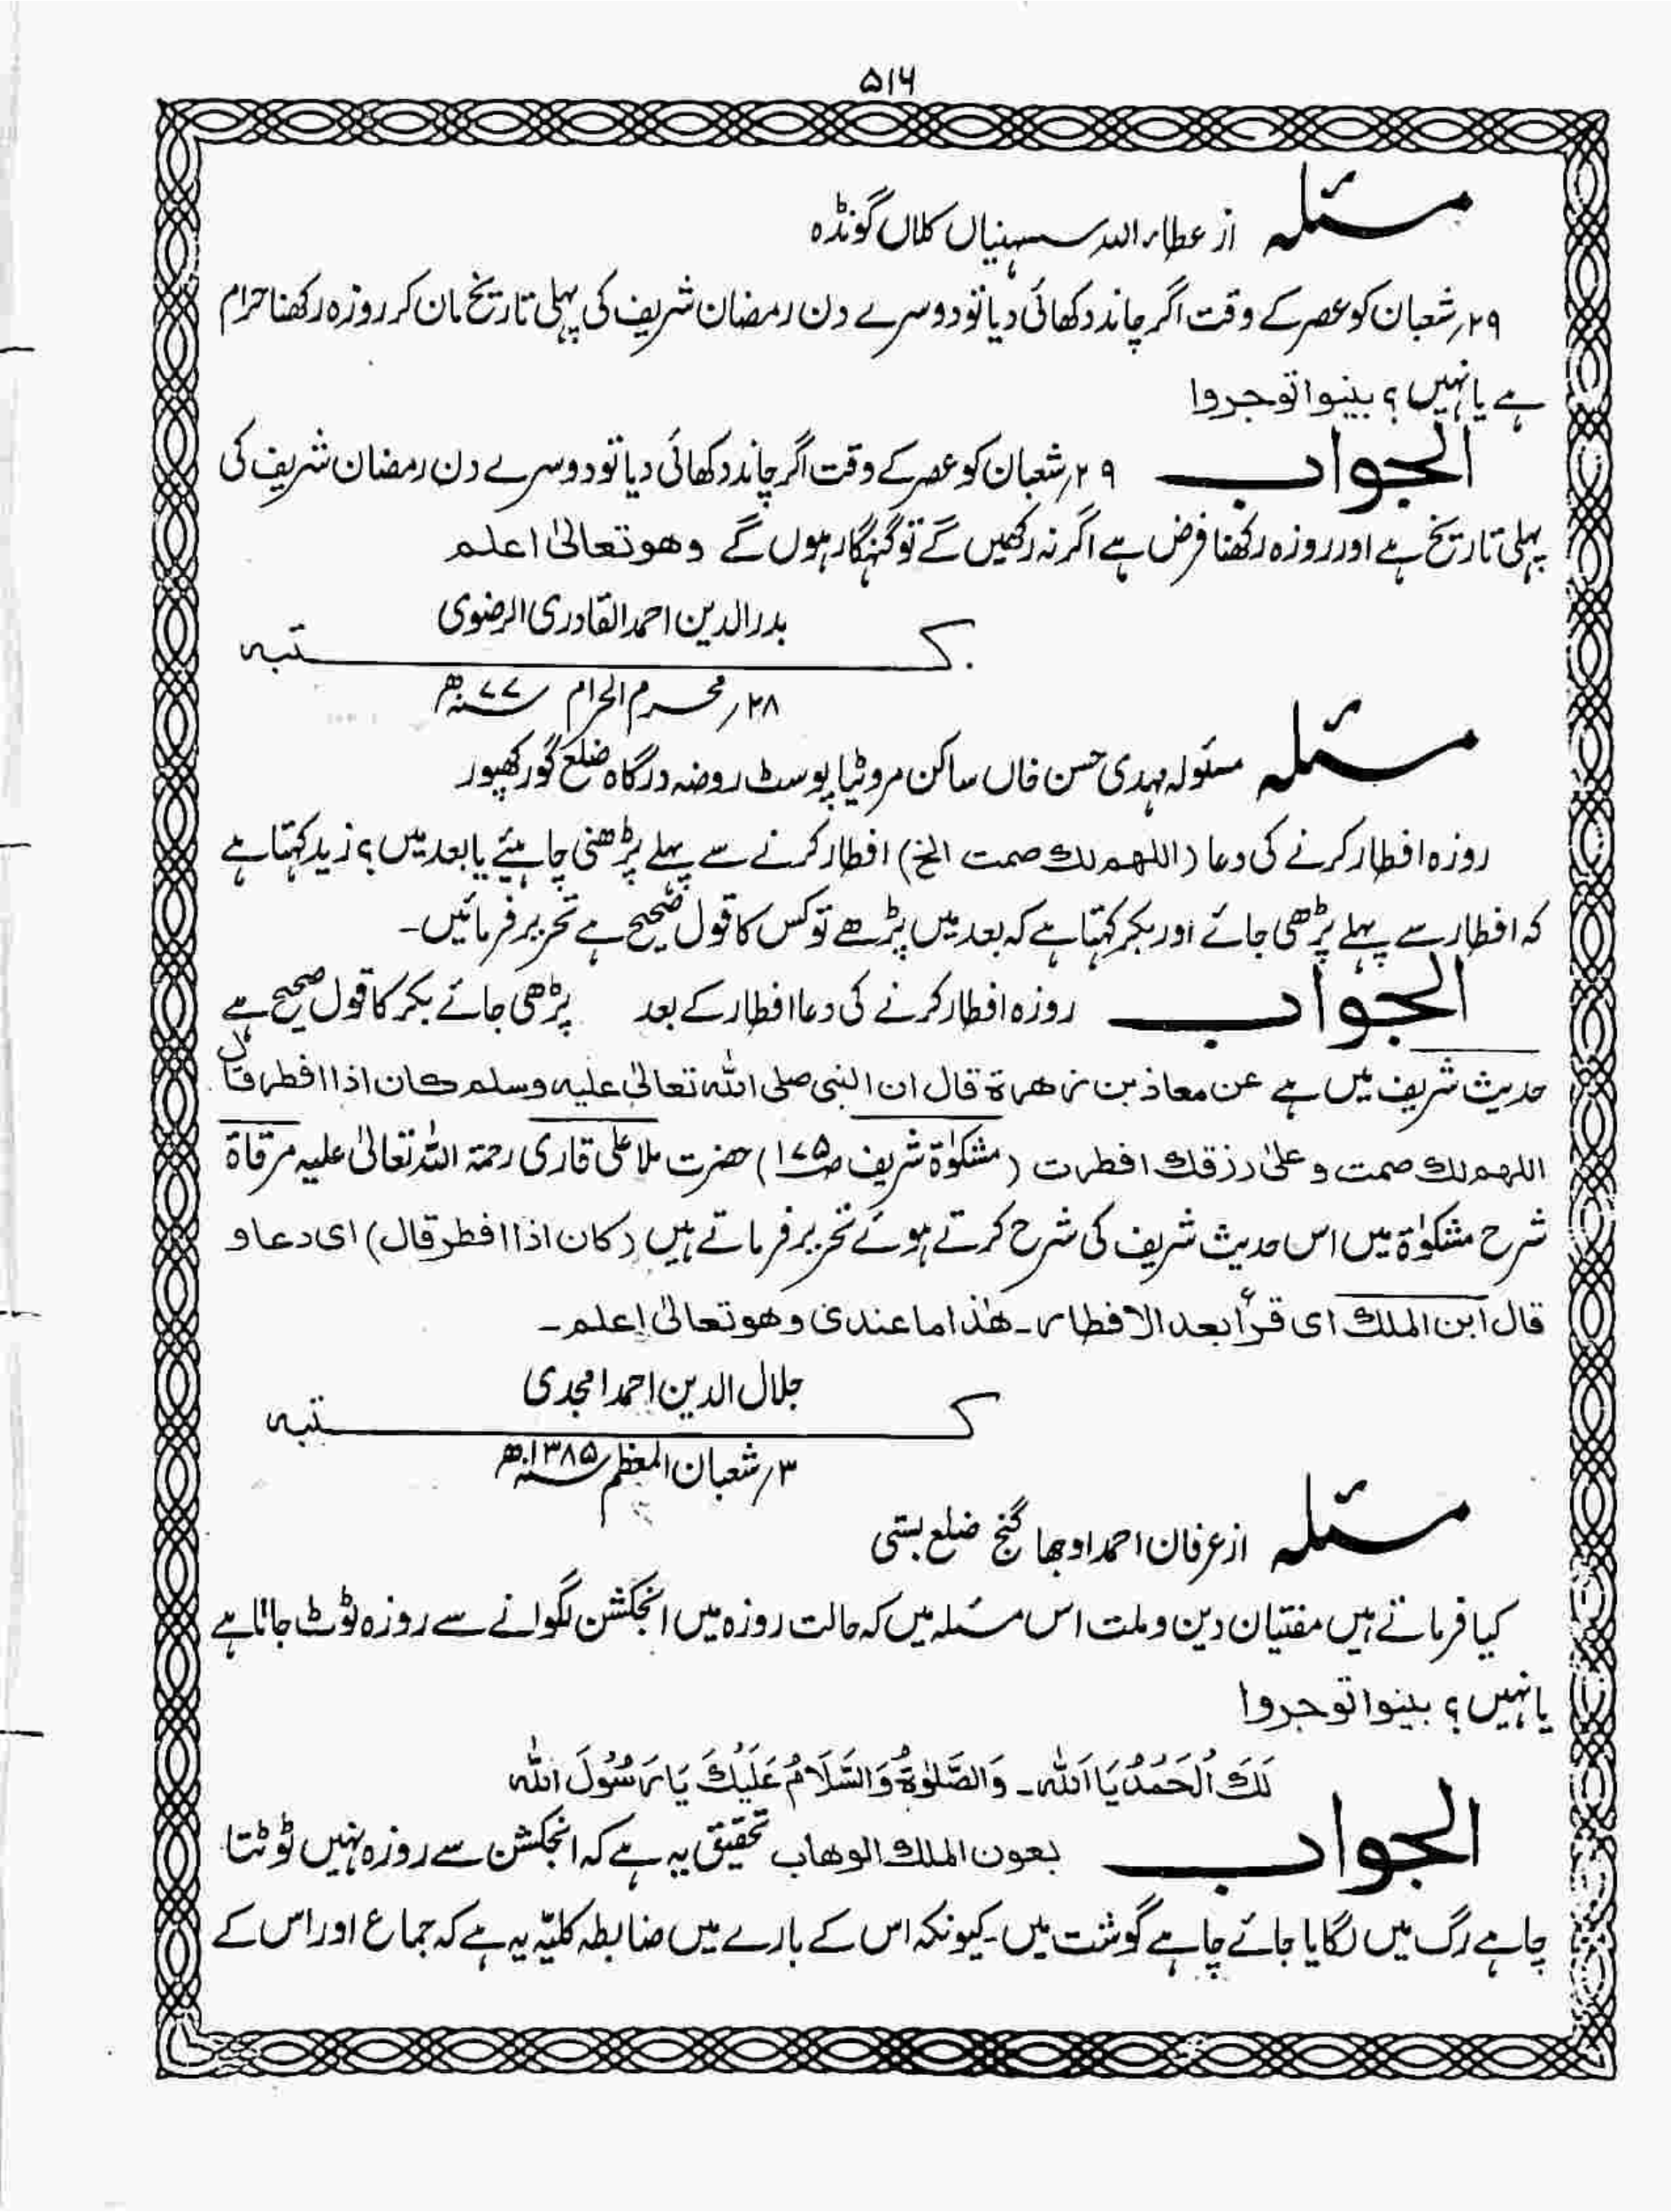 ۵۱۶
مسئلہ از عطاء اللہ سسہنیاں کلاں گونڈہ
۲۹؍ شعبان کو عصر کے وقت اگر چاند دکھائی دیا تو دوسرے دن رمضان شریف کی پہلی تاریخ مان کر روزہ رکھنا حرام
ہے یا نہیں؟ بینوا توجروا
الجواب ۲۹؍ شعبان کو عصر کے وقت اگر چاند دکھائی دیا تو دوسرے دن رمضان شریف کی
پہلی تاریخ ہے اور روزہ رکھنا فرض ہے اگر نہ رکھیں گے تو گنہگار ہوں گے وھو تعالیٰ اعلم
بدر الدین احمد القادری الرضوی
کتبہ
۲۸؍ محرم الحرام ۷۷ھ
مسئلہ مسئولہ مہدی حسن خاں ساکن مروٹیا پوسٹ روضہ درگاہ ضلع گورکھپور
روزہ افطار کرنے کی دعا (اللھم لک صمت الخ) افطار کرنے سے پہلے پڑھنی چاہیئے یا بعد میں؟ زید کہتا ہے
کہ افطار سے پہلے پڑھی جائے اور بکر کہتا ہے کہ بعد میں پڑھے تو کس کا قول صحیح ہے تحریر فرمائیں۔
الجواب روزہ افطار کرنے کی دعا افطار کے بعد پڑھی جائے بکر کا قول صحیح ہے
حدیث شریف میں ہے عن معاذ بن زھرۃ قال ان النبی صلی اللہ تعالیٰ علیہ وسلم کان اذا افطر قال
اللھم لک صمت و علیٰ رزقک افطرت (مشکوٰۃ شریف ص۱۷۵) حضرت ملا علی قاری رحمۃ اللہ تعالیٰ علیہ مرقاۃ
شرح مشکوٰۃ میں اس حدیث شریف کی شرح کرتے ہوئے تحریر فرماتے ہیں (کان اذا افطر قال) ای دعا و
قال ابن الملک ای قرأ بعد الافطار۔ ھٰذا ما عندی وھو تعالیٰ اعلم۔
جلال الدین احمد امجدی
کتبہ
۳؍ شعبان المعظم ۱۳۸۵ھ
مسئلہ از عرفان احمد اوجھا گنج ضلع بستی
کیا فرماتے ہیں مفتیان دین و ملت اس مسئلہ میں کہ حالت روزہ میں انجکشن لگوانے سے روزہ ٹوٹ جاتا ہے
یا نہیں؟ بینوا توجروا
لَکَ الْحَمْدُ یَا اَللہ۔ وَالصَّلٰوۃُ وَالسَّلَامُ عَلَیْکَ یَا رَسُوْلَ اللہ
الجواب بعون الملک الوھاب تحقیق یہ ہے کہ انجکشن سے روزہ نہیں ٹوٹتا
چاہے رگ میں لگایا جائے چاہے گوشت میں۔ کیونکہ اس کے بارے میں ضابطہ کلیّہ یہ ہے کہ جماع اور اس کے